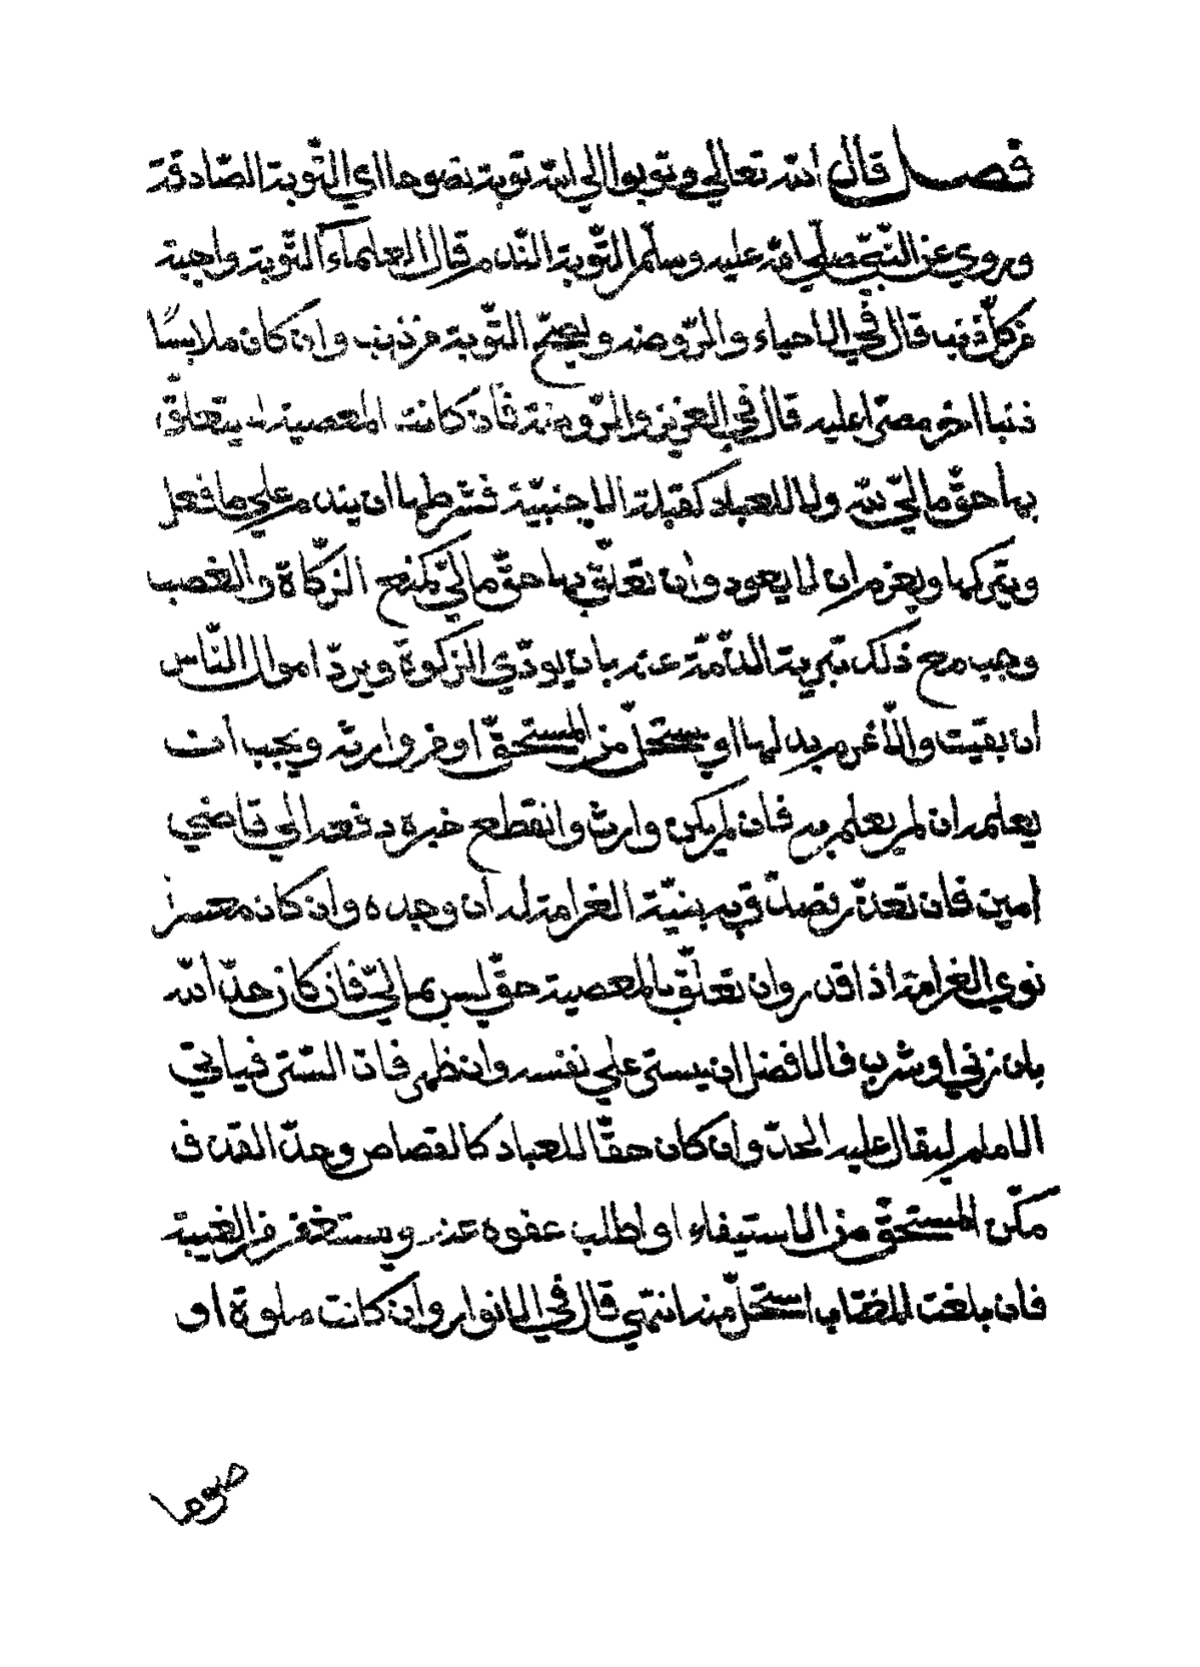 فصل قال الله تعالي وتوبوا الي الله توبة نصوحا اي التوبة الصادقة
وروي عن النبي صلي الله عليه وسلم التوبة الندم قال العلماء التوبة واجبة
من كل ذنب قال في الاحياء والروضة ويصح التوبة من ذنب وان كان ملابسًا
ذنبا اخر مصرا عليه قال في العزيز والروضة فان كانت المعصية لا يتعلق
بها حق مالي لله ولا للعباد كقبلة الاجنبية فشرطها ان يندم علي ما فعل
ويتركها ويعزم ان لا يعود وان تعلق بها حق مالي كمنع الزكاة والغصب
وجب مع ذلك تبرية الذمة عنه بان يودي الزكوة ويرد اموال الناس
ان بقيت والا غرم بدلها او يستحل من المستحق او من وارثه ويجب ان
يعلمه ان لم يعلم به فان لم يكن وارث وانقطع خبره دفعه الي قاضي
امين فان تعذر تصدق به بنية الغرامة له ان وجده وان كان معسرا
نوي الغرامة اذا قدر وان تعلق بالمعصية حق ليس بمالي فان كان حد الله
بان زني او شرب فالافضل ان يستر علي نفسه وان ظهر فات الستر فياتي
الامام ليقال عليه الحد وان كان حقا للعباد كالقصاص وحد القذف
مكن المستحق من الاستيفاء او اطلب عفوه عنه ويستغفر من الغيبة
فان بلغت المغتاب استحل منه انتهي قال في الانوار وان كانت صلوة او
صوما